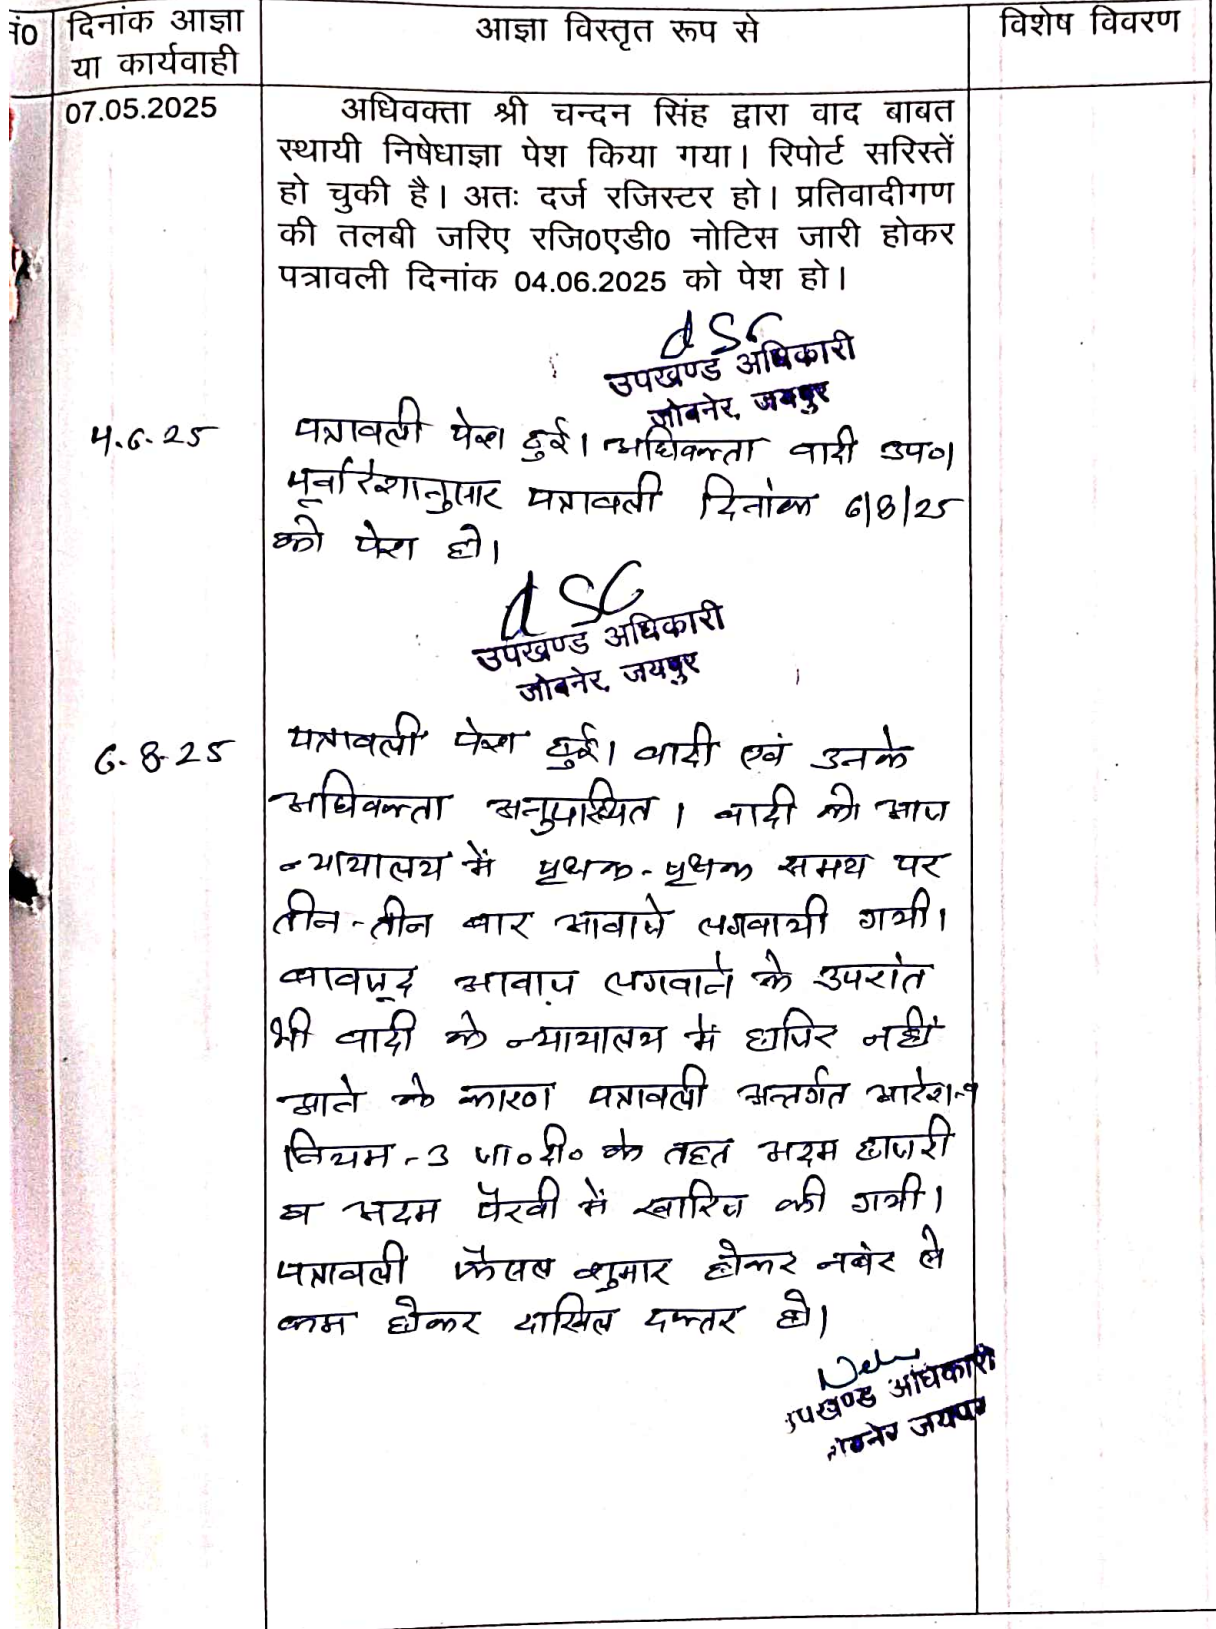 नं0 दिनांक आज्ञा या कार्यवाही आज्ञा विस्तृत रूप से विशेष विवरण
07.05.2025 अधिवक्ता श्री चन्दन सिंह द्वारा वाद बाबत
स्थायी निषेधाज्ञा पेश किया गया। रिपोर्ट सरिस्तें
हो चुकी है। अतः दर्ज रजिस्टर हो। प्रतिवादीगण
की तलबी जरिए रजि0एडी0 नोटिस जारी होकर
पत्रावली दिनांक 04.06.2025 को पेश हो।
उपखण्ड अधिकारी
जोबनेर, जयपुर
4.6.25 पत्रावली पेश हुई। अधिवक्ता वादी उप०।
पूर्वादेशानुसार पत्रावली दिनांक 6/8/25
को पेश हो।
उपखण्ड अधिकारी
जोबनेर, जयपुर
6.8.25 पत्रावली पेश हुई। वादी एवं उनके
अधिवक्ता अनुपस्थित। वादी को आज
न्यायालय में पृथक-पृथक समय पर
तीन-तीन बार आवाजे लगवायी गयी।
बावजूद आवाज लगवाने के उपरांत
भी वादी के न्यायालय में हाजिर नहीं
आने के कारण पत्रावली अन्तर्गत आदेश-9
नियम-3 जा०दी० के तहत अदम हाजरी
व अदम पैरवी में खारिज की गयी।
पत्रावली फैसल शुमार होकर नबंर से
कम होकर दाखिल दफ्तर हो।
उपखण्ड अधिकारी
जोबनेर जयपुर